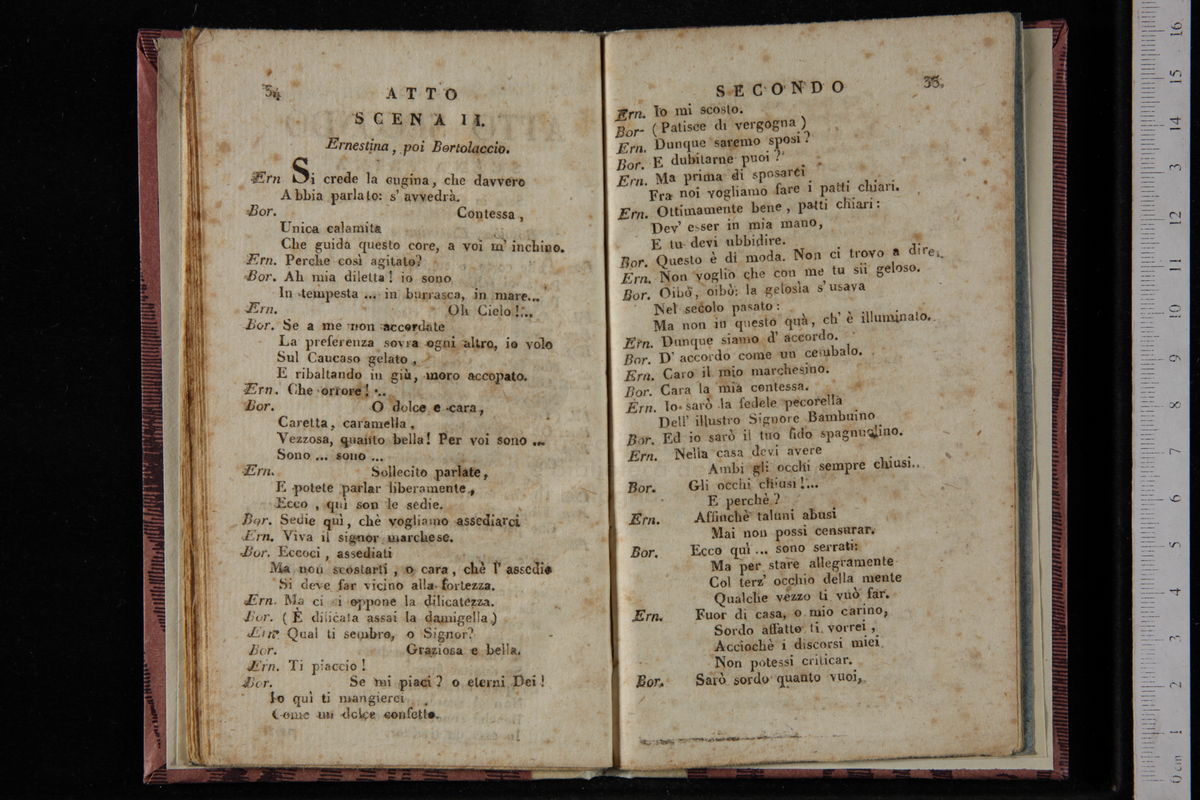 34
ATTO
SCENA II.
Ernestina, poi Bortolaccio.
Ern Si crede la cugina, che davvero
Abbia parlato: s' avvedrà.
Bor. Contessa,
Unica calamita
Che guida questo core, a voi m' inchino.
Ern. Perche così agitato?
Bor. Ah mia diletta! io sono
In tempesta ... in burrasca, in mare...
Ern. Oh Cielo!...
Bor. Se a me non accordate
La preferenza sovra ogni altro, io volo
Sul Caucaso gelato,
E ribaltando in giù, moro accopato.
Ern. Che orrore!...
Bor. O dolce e cara,
Caretta, caramella,
Vezzosa, quanto bella! Per voi sono ...
Sono ... sono ...
Ern. Sollecito parlate,
E potete parlar liberamente,
Ecco, quì son le sedie.
Bor. Sedie quì, chè vogliamo assediarci
Ern. Viva il signor marchese.
Bor. Eccoci, assediati
Ma non scostarti, o cara, chè l' assedio
Si deve far vicino alla fortezza.
Ern. Ma ci si oppone la dilicatezza.
Bor. (È dilicata assai la damigella)
Ern. Qual ti sembro, o Signor?
Bor. Graziosa e bella.
Ern. Ti piaccio!
Bor. Se mi piaci? o eterni Dei!
Io quì ti mangierei
Come un dolce confetto.
SECONDO
35
Ern. Io mi scosto.
Bor- (Patisce di vergogna)
Ern. Dunque saremo sposi?
Bor. E dubitarne puoi?
Ern. Ma prima di sposarci
Fra noi vogliamo fare i patti chiari.
Ern. Ottimamente bene, patti chiari:
Dev' esser in mia mano,
E tu devi ubbidire.
Bor. Questo è di moda. Non ci trovo a dire.
Ern. Non voglio che con me tu sii geloso.
Bor. Oibò, oibò: la gelosia s' usava
Nel secolo pasato:
Ma non in questo quà, ch' è illuminato.
Ern. Dunque siamo d' accordo.
Bor. D' accordo come un cembalo.
Ern. Caro il mio marchesino.
Bor. Cara la mia contessa.
Ern. Io sarò la fedele pecorella
Dell' illustro Signore Bambuino
Bor. Ed io sarò il tuo fido spagnuolino.
Ern. Nella casa devi avere
Ambi gli occhi sempre chiusi..
Bor. Gli occhi chiusi!...
E perchè?
Ern. Affinchè taluni abusi
Mai non possi censurar.
Bor. Ecco quì ... sono serrati:
Ma per stare allegramente
Col terz' occhio della mente
Qualche vezzo ti vuò far.
Ern. Fuor di casa, o mio carino,
Sordo affatto ti vorrei,
Acciochè i discorsi miei
Non potessi criticar.
Bor. Sarò sordo quanto vuoi,
0 cm 1 2 3 4 5 6 7 8 9 10 11 12 13 14 15 16